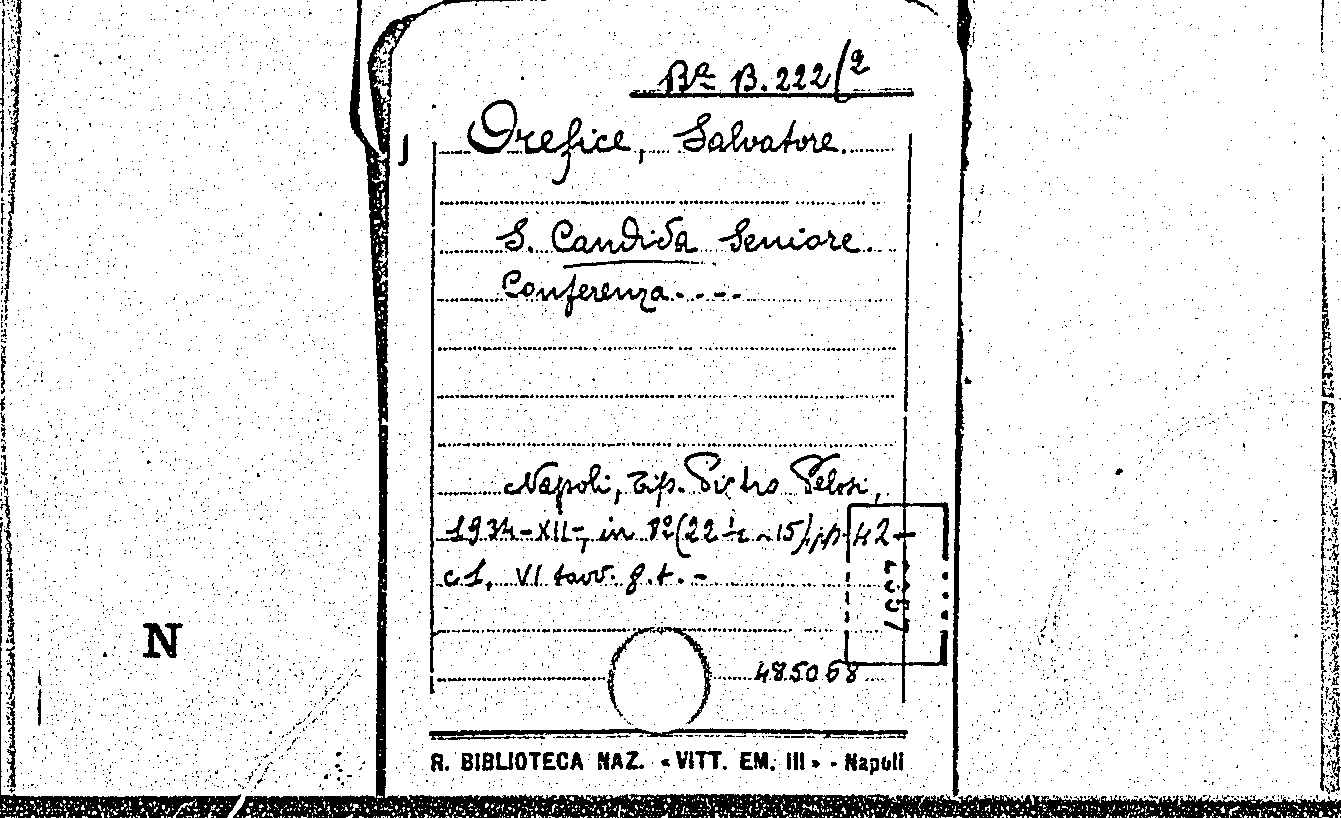 Bª B.222/2
Orefice, Salvatore.
S. Candida Seniore.
Conferenza....
Napoli, Tip. Pietro Pelosi,
1934-XII-, in 8º (22 ½ ~ 15), pp. 42-
c. 1, VI tavv. f.t. -
485068
N
R. BIBLIOTECA NAZ. «VITT. EM. III» - Napoli